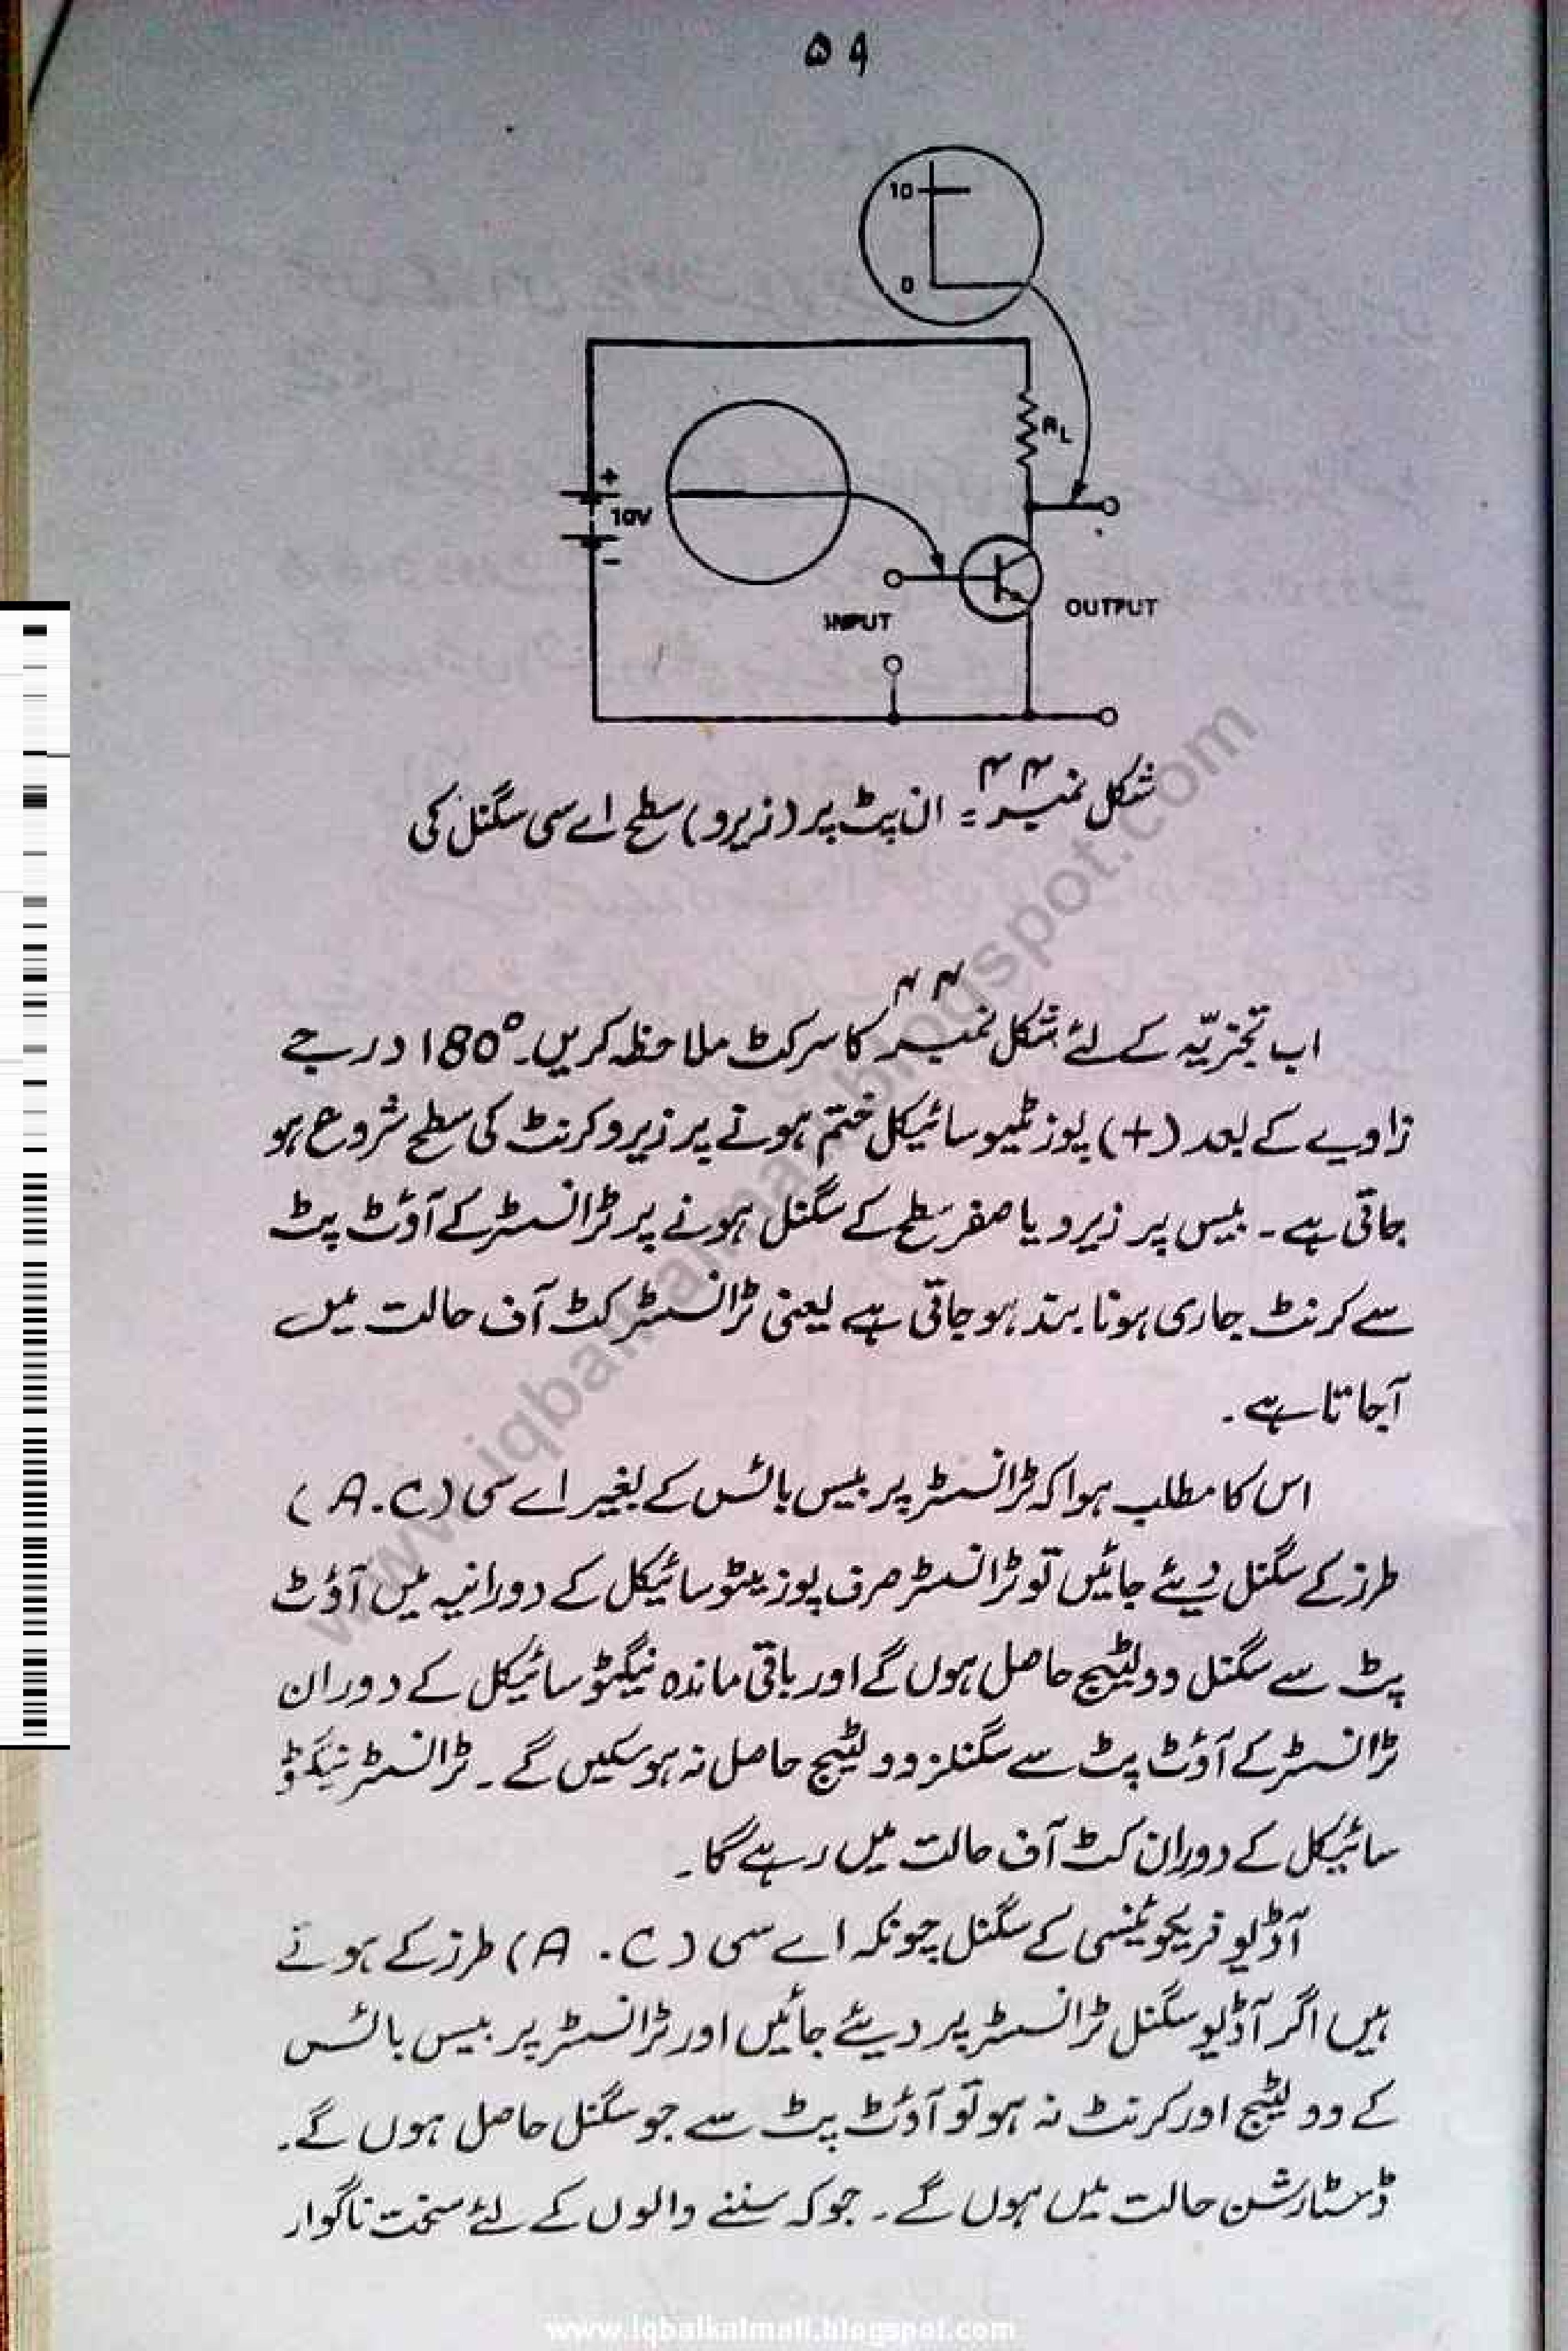 ۵۹
10
0
RL
+
10V
-
INPUT
OUTPUT
شکل نمبر ۴۴ = ان پٹ پر (زیرو) سطح اے سی سگنل کی
اب تجزیّہ کے لئے شکل نمبر ۴۴ کا سرکٹ ملاحظہ کریں۔ 180° درجے
زاویے کے بعد (+) پوزیٹیو سائیکل ختم ہونے پر زیرو کرنٹ کی سطح شروع ہو
جاتی ہے۔ بیس پر زیرو یا صفر سطح کے سگنل ہونے پر ٹرانسسٹر کے آؤٹ پٹ
سے کرنٹ جاری ہونا بند ہو جاتی ہے یعنی ٹرانسسٹر کٹ آف حالت میں
آجاتا ہے۔
اس کا مطلب ہوا کہ ٹرانسسٹر پر بیس بائس کے بغیر اے سی (A.C)
طرز کے سگنل دیئے جائیں تو ٹرانسسٹر صرف پوزیٹو سائیکل کے دورانیہ میں آؤٹ
پٹ سے سگنل وولٹیج حاصل ہوں گے اور باقی ماندہ نیگٹو سائیکل کے دوران
ٹرانسسٹر کے آؤٹ پٹ سے سگنلز وولٹیج حاصل نہ ہو سکیں گے۔ ٹرانسسٹر نیگٹو
سائیکل کے دوران کٹ آف حالت میں رہے گا۔
آڈیو فریکوئینسی کے سگنل چونکہ اے سی (A.C) طرز کے ہوتے
ہیں اگر آڈیو سگنل ٹرانسسٹر پر دیئے جائیں اور ٹرانسسٹر پر بیس بائس
کے وولٹیج اور کرنٹ نہ ہو تو آؤٹ پٹ سے جو سگنل حاصل ہوں گے۔
ڈسٹارشن حالت میں ہوں گے۔ جو کہ سننے والوں کے لئے سخت ناگوار
www.iqbalkalmati.blogspot.com
www.iqbalkalmati.blogspot.com